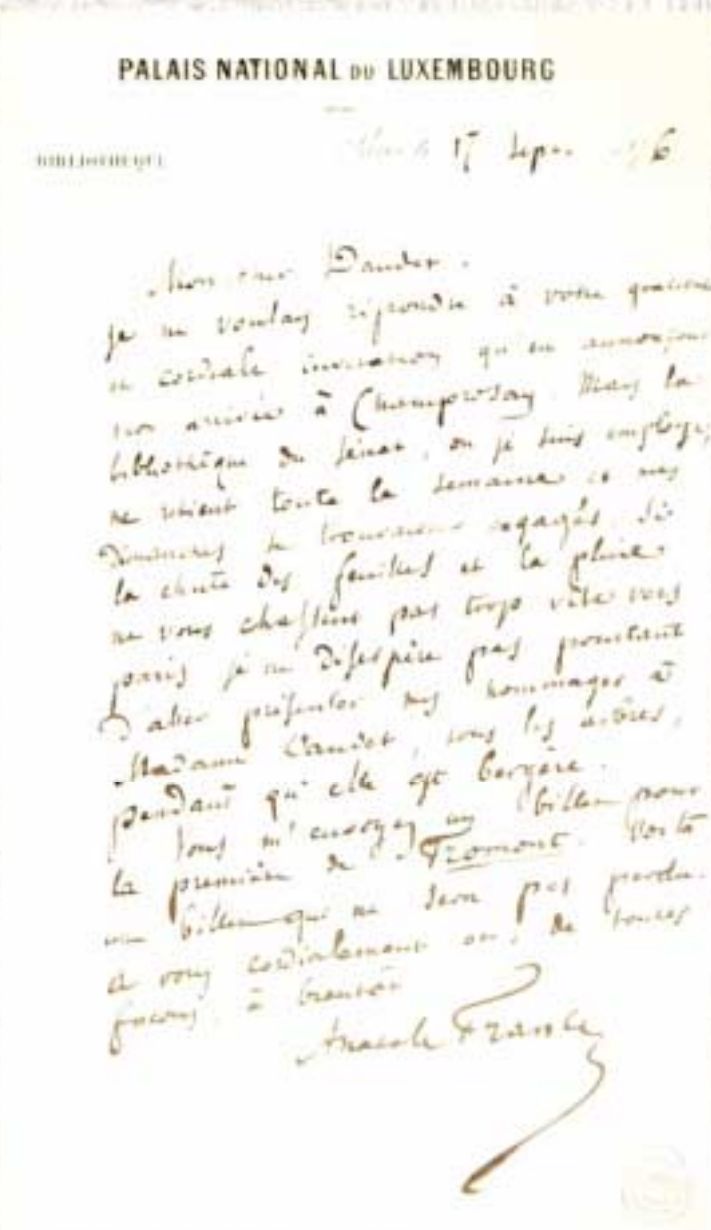 PALAIS NATIONAL DU LUXEMBOURG
BIBLIOTHÈQUE
17 Sept 6
Mon cher Daudet.
je ne voulais répondre à votre gracieuse
et cordiale invitation qu'en annonçant
mon arrivée à Champrosay. Mais la
bibliothèque du Sénat, où je suis employé,
me retient toute la semaine et mes
Dimanches se trouvaient engagés. Si
la chute des feuilles et la pluie
ne vous chassent pas trop vite vers
paris je ne désespère pas pourtant
d'aller présenter mes hommages à
Madame Daudet, sous les arbres,
pendant qu'elle est bergère.
Vous m'envoyez un billet pour
la première de Fromont. Voilà
un billet qui ne sera pas perdu.
à vous cordialement et, de toutes
façons, à bientôt
Anatole France